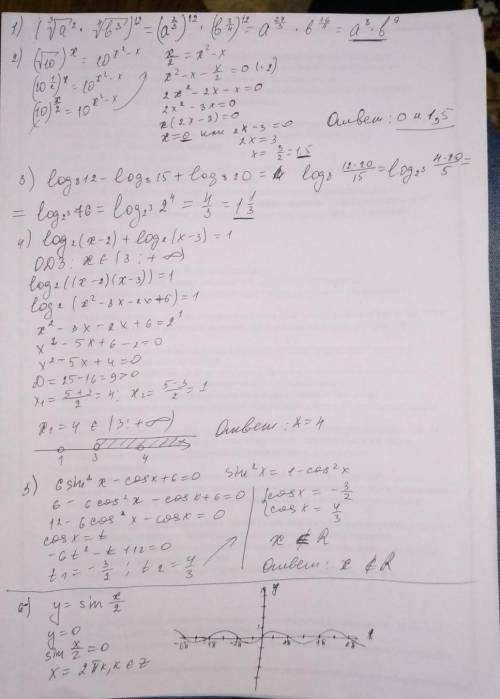 1) (∛a² · ∜b³)¹² = (a^(2/3))¹² · (b^(3/4))¹² = a^(24/3) · b^(36/4) = a⁸ · b⁹
2) (√10)^x = 10^(x²-x)
(10^(1/2))^x = 10^(x²-x)
(10)^(x/2) = 10^(x²-x)
x/2 = x²-x
x²-x-x/2 = 0 (·2)
2x²-2x-x=0
2x²-3x=0
x(2x-3)=0
x=0 или 2x-3=0
2x=3
x=3/2=1,5
Ответ: 0 и 1,5
3) log₈12 - log₈15 + log₈20 = log₈ (12·20)/15 = log₂³ (4·20)/5 =
= log₂³16 = log₂³ 2⁴ = 4/3 = 1 1/3
4) log₂(x-2) + log₂(x-3) = 1
ОДЗ: x ∈ (3; +∞)
log₂((x-2)(x-3)) = 1
log₂(x²-3x-2x+6) = 1
x²-3x-2x+6=2¹
x²-5x+6-2=0
x²-5x+4=0
D=25-16=9>0
x₁=(5+3)/2=4; x₂=(5-3)/2=1
x₁=4 ∈ (3;+∞)
1 3 4
Ответ: x=4
5) 6sin²x-cosx+6=0 sin²x=1-cos²x
6-6cos²x-cosx+6=0
12-6cos²x-cosx=0
cosx=t
-6t²-t+12=0
t₁=-3/2; t₂=4/3
cosx=-3/2
cosx=4/3
x ∉ R
Ответ: x ∉ R
6) y = sin x/2
y=0
sin x/2=0
x=2πk, k∈z
y
x